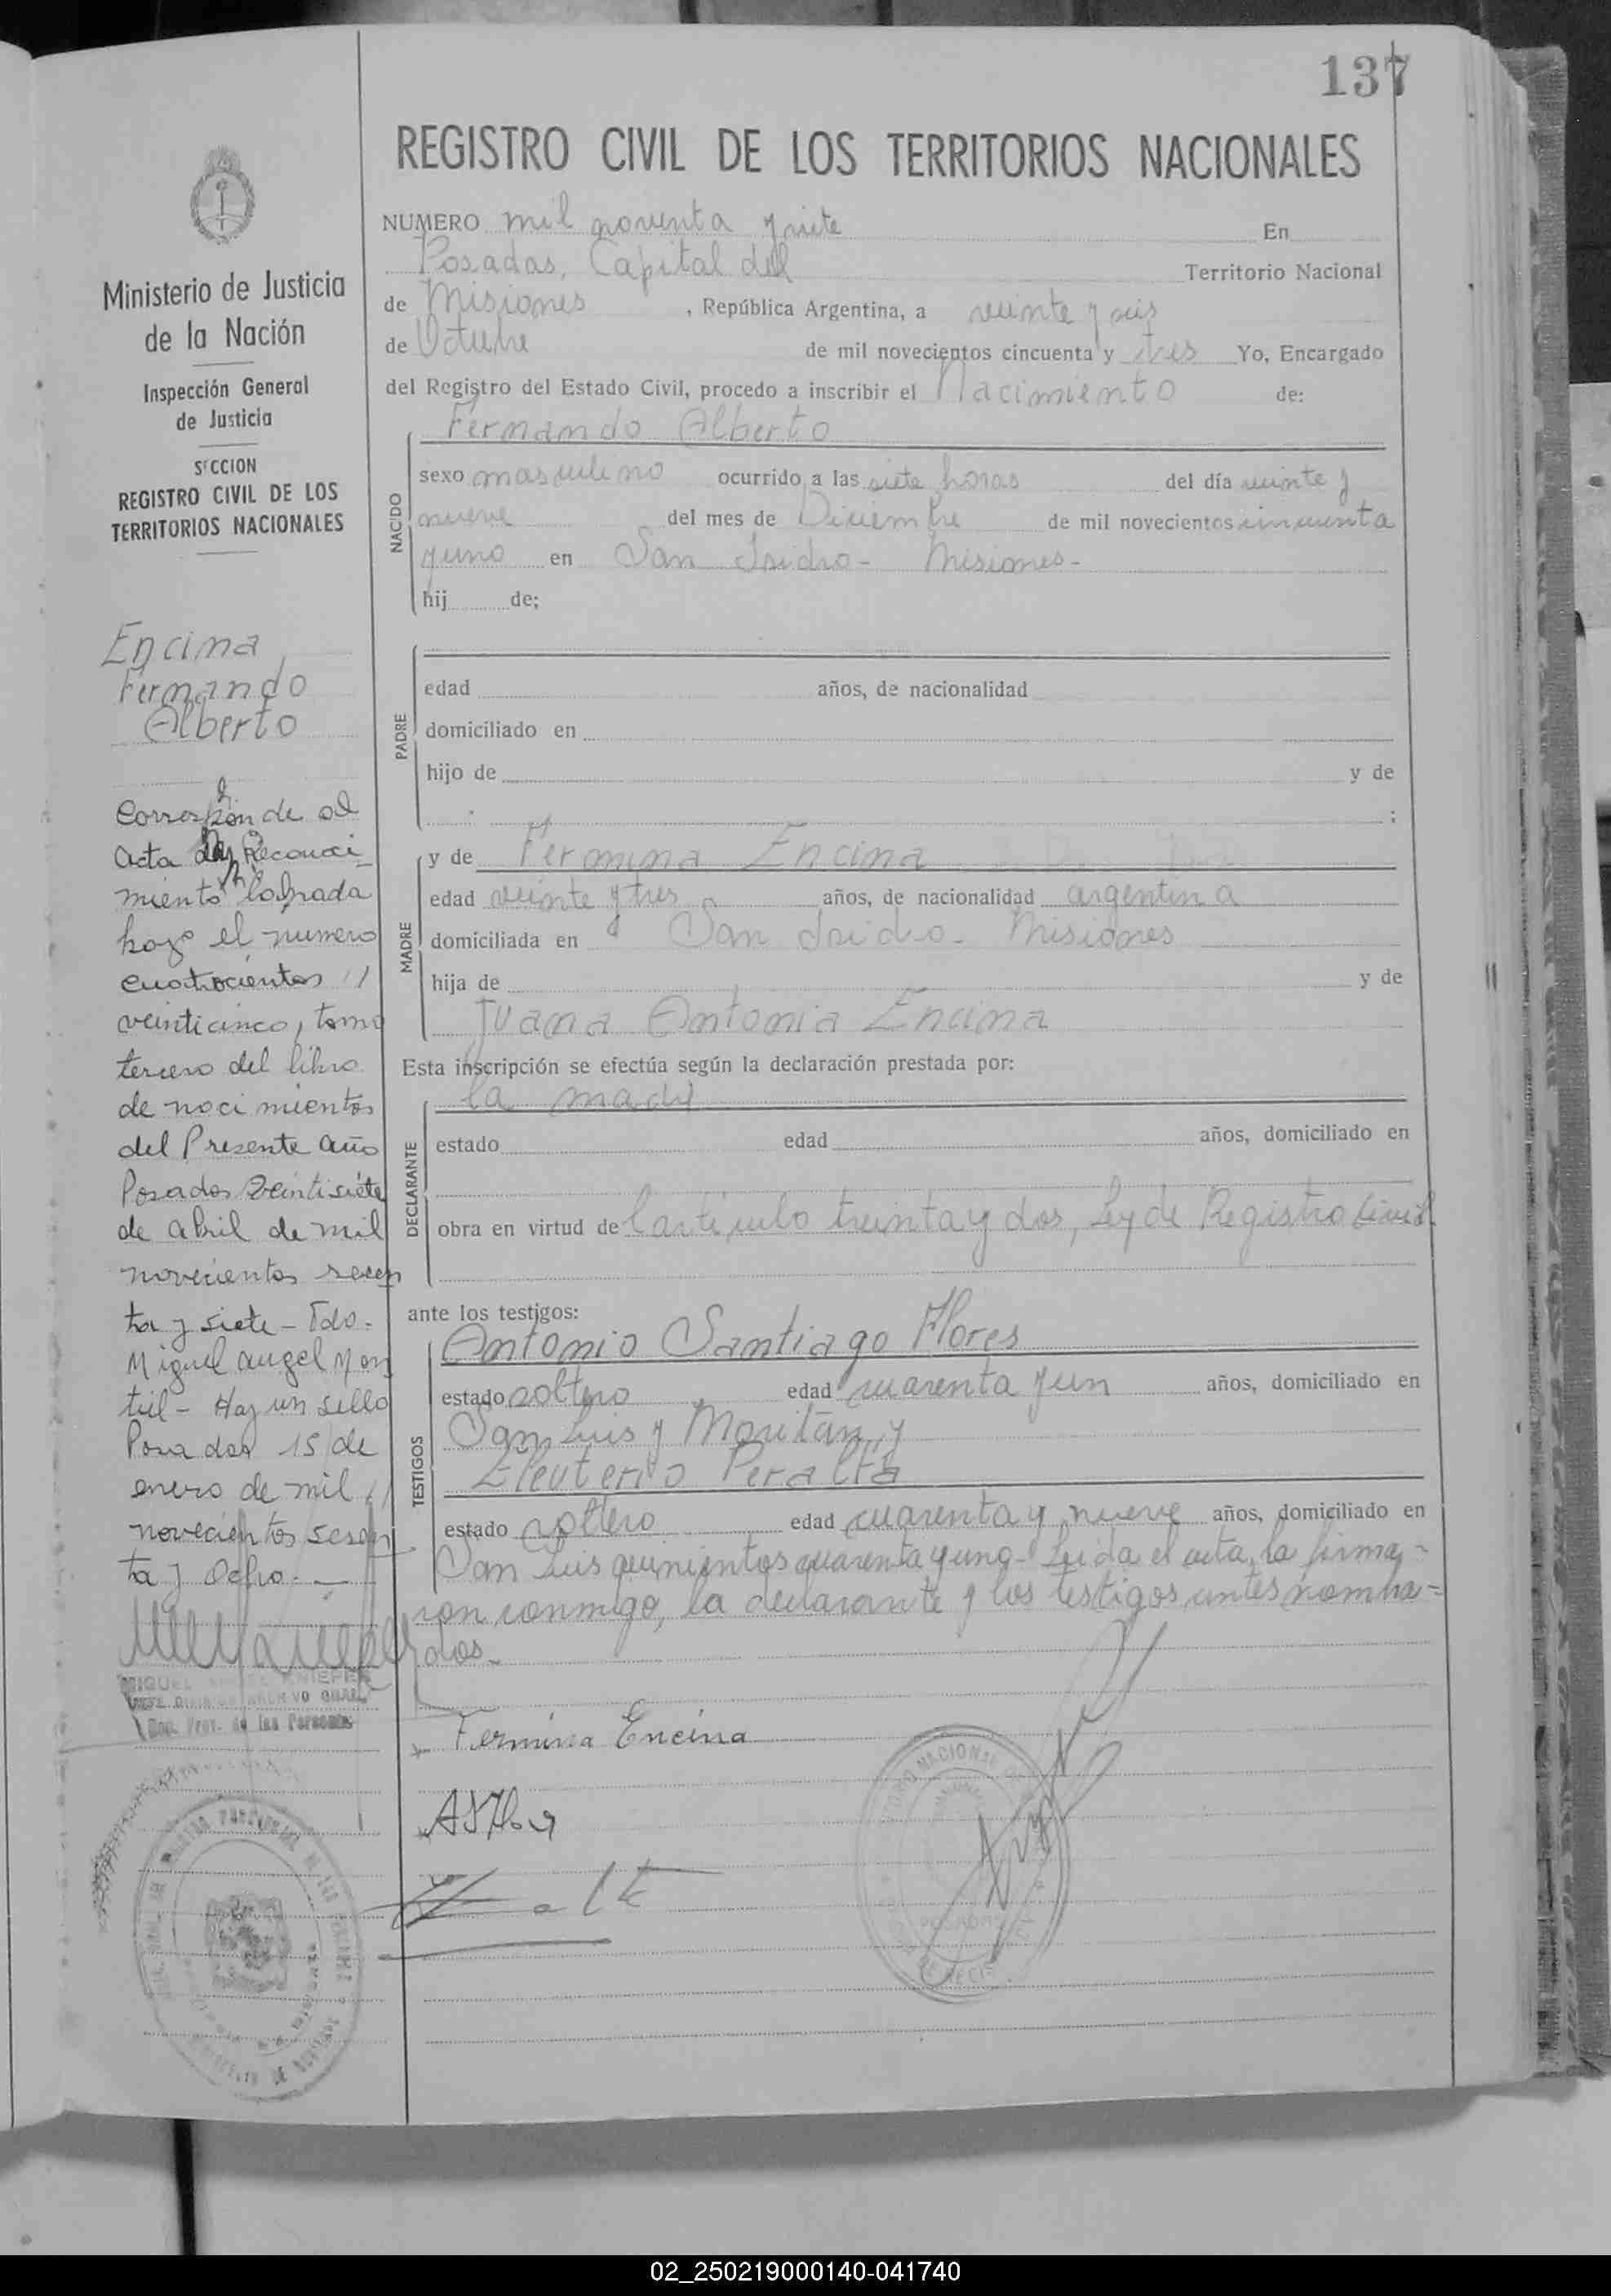 137
REGISTRO CIVIL DE LOS TERRITORIOS NACIONALES
Ministerio de Justicia
de la Nación
Inspección General
de Justicia
SECCION
REGISTRO CIVIL DE LOS
TERRITORIOS NACIONALES
Encina
Fernando
Alberto
Corresponde al
acta de Reconoci-
miento labrada
bajo el número
cuatrocientos //
veinticinco, tomo
tercero del libro
de nacimientos
del Presente año
Posadas veintisiete
de abril de mil
novecientos sesen
ta y siete - Fdo.
Miguel angel Mon
tiel - Hay un sello
Posadas 15 de
enero de mil //
novecientos sesen
ta y Ocho. —
NUMERO mil noventa y siete En
Posadas, Capital del Territorio Nacional
de Misiones, República Argentina, a veinte y seis
de Octubre de mil novecientos cincuenta y tres Yo, Encargado
del Registro del Estado Civil, procedo a inscribir el Nacimiento de:
NACIDO
Fernando Alberto
sexo masculino ocurrido a las siete horas del día veinte y
nueve del mes de Diciembre de mil novecientos cincuenta
y uno en San Isidro - Misiones -
hij de;
PADRE
edad años, de nacionalidad
domiciliado en
hijo de y de
;
MADRE
y de Fermina Encina
edad veinte y tres años, de nacionalidad argentina
domiciliada en San Isidro - Misiones
hija de y de
Juana Antonia Encina
Esta inscripción se efectúa según la declaración prestada por:
DECLARANTE
la madre
estado edad años, domiciliado en
obra en virtud del artículo treinta y dos, Ley de Registro Civil
ante los testigos:
TESTIGOS
Antonio Santiago Flores
estado soltero edad cuarenta y un años, domiciliado en
San Luis y Moritán, y
Eleuterio Peralta
estado soltero edad cuarenta y nueve años, domiciliado en
San Luis quinientos cuarenta y uno - Leida el acta, la firma-
ron conmigo, la declarante y los testigos antes nombra-
dos.
Fermina Encina
02_250219000140-041740